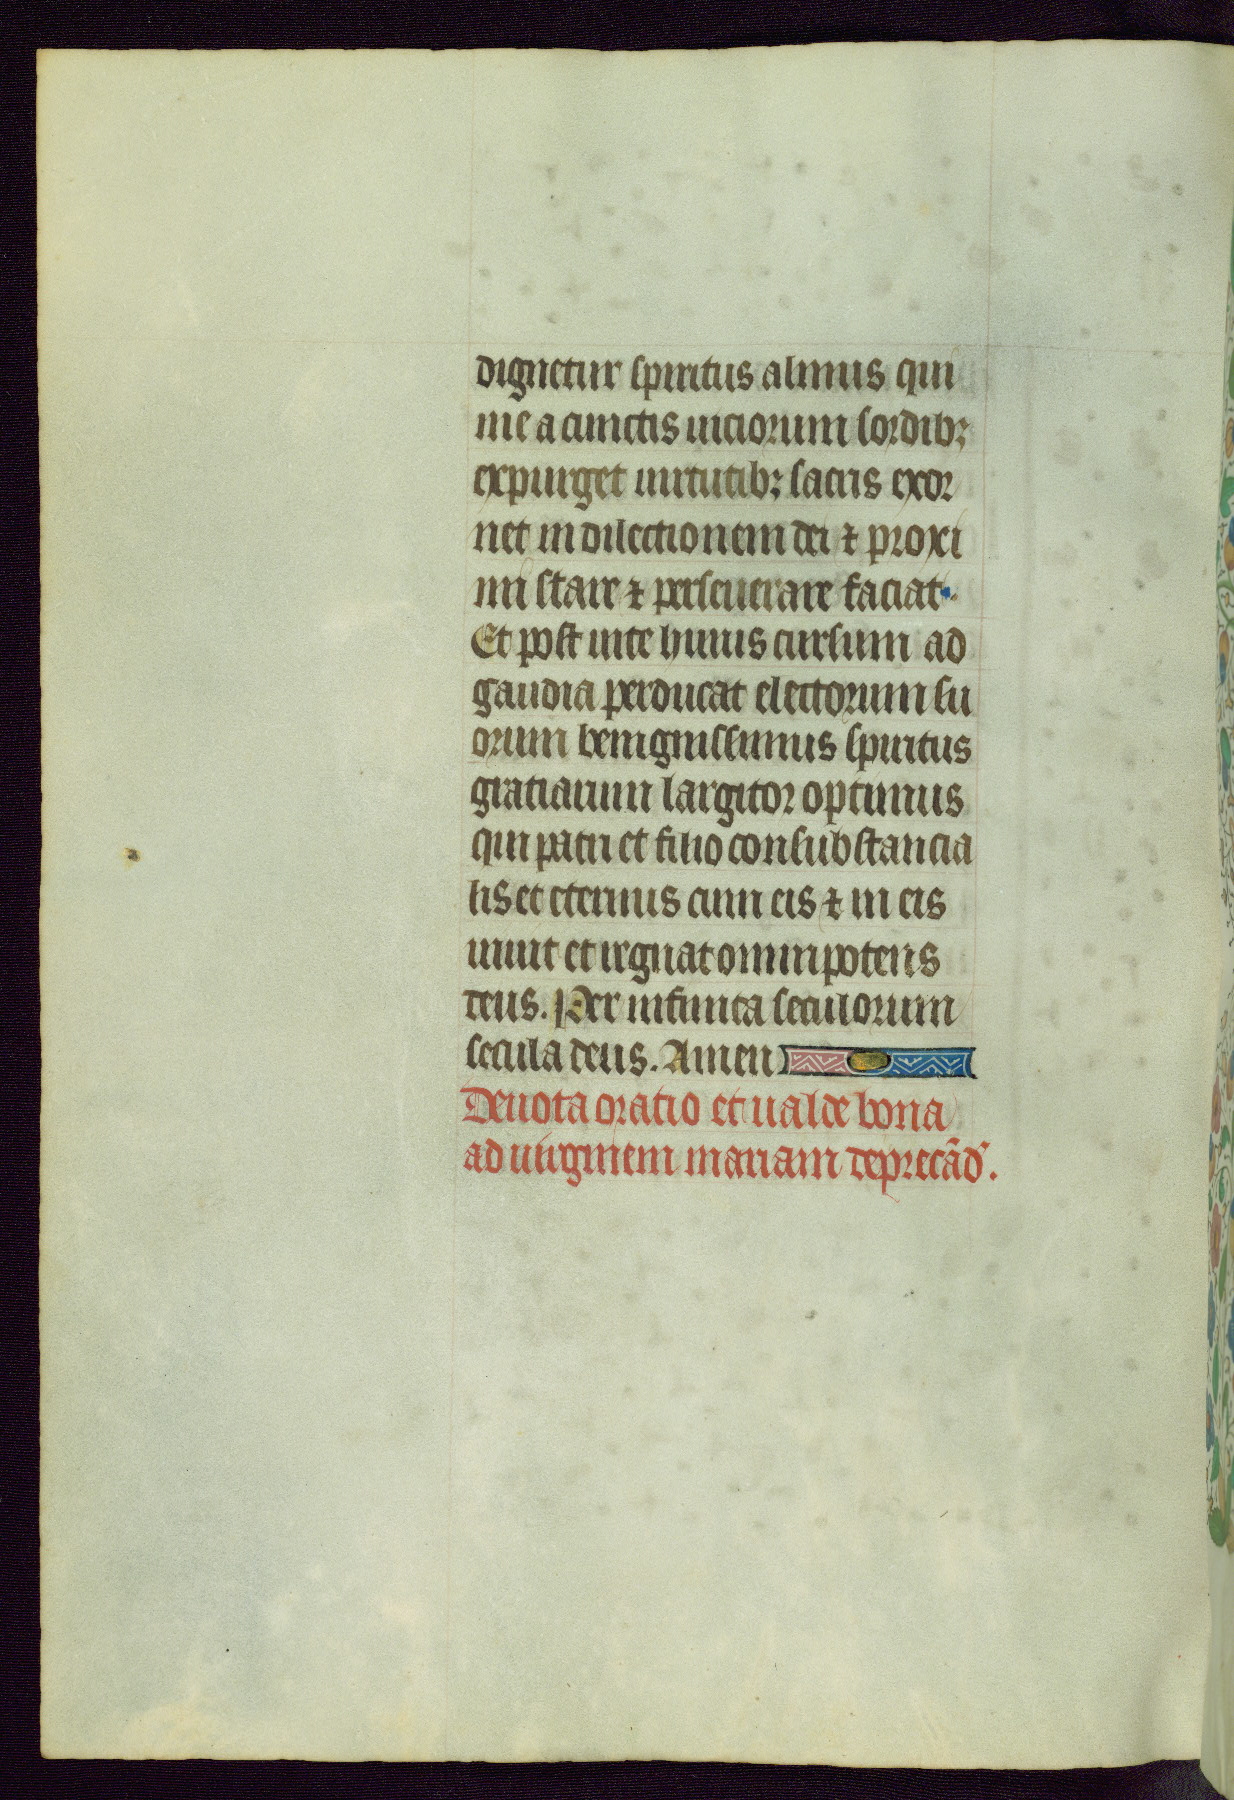 dignetur spiritus almus qui
me a cunctis uiciorum sordibꝫ
expurget uirtutibꝫ sacris exor
net in dilectionem dei ⁊ proxi
mi stare ⁊ perseuerare faciat.
Et post uite huius cursum ad
gaudia perducat electorum su
orum benignissimus spiritus
gratiarum largitor optimus
qui patri et filio consubstancia
lis et eternus cum eis ⁊ in eis
uiuit et regnat omnipotens
deus. Per infinita seculorum
secula deus. Amen
Deuota oratio et ualde bona
ad uirginem mariam deprecãd'.